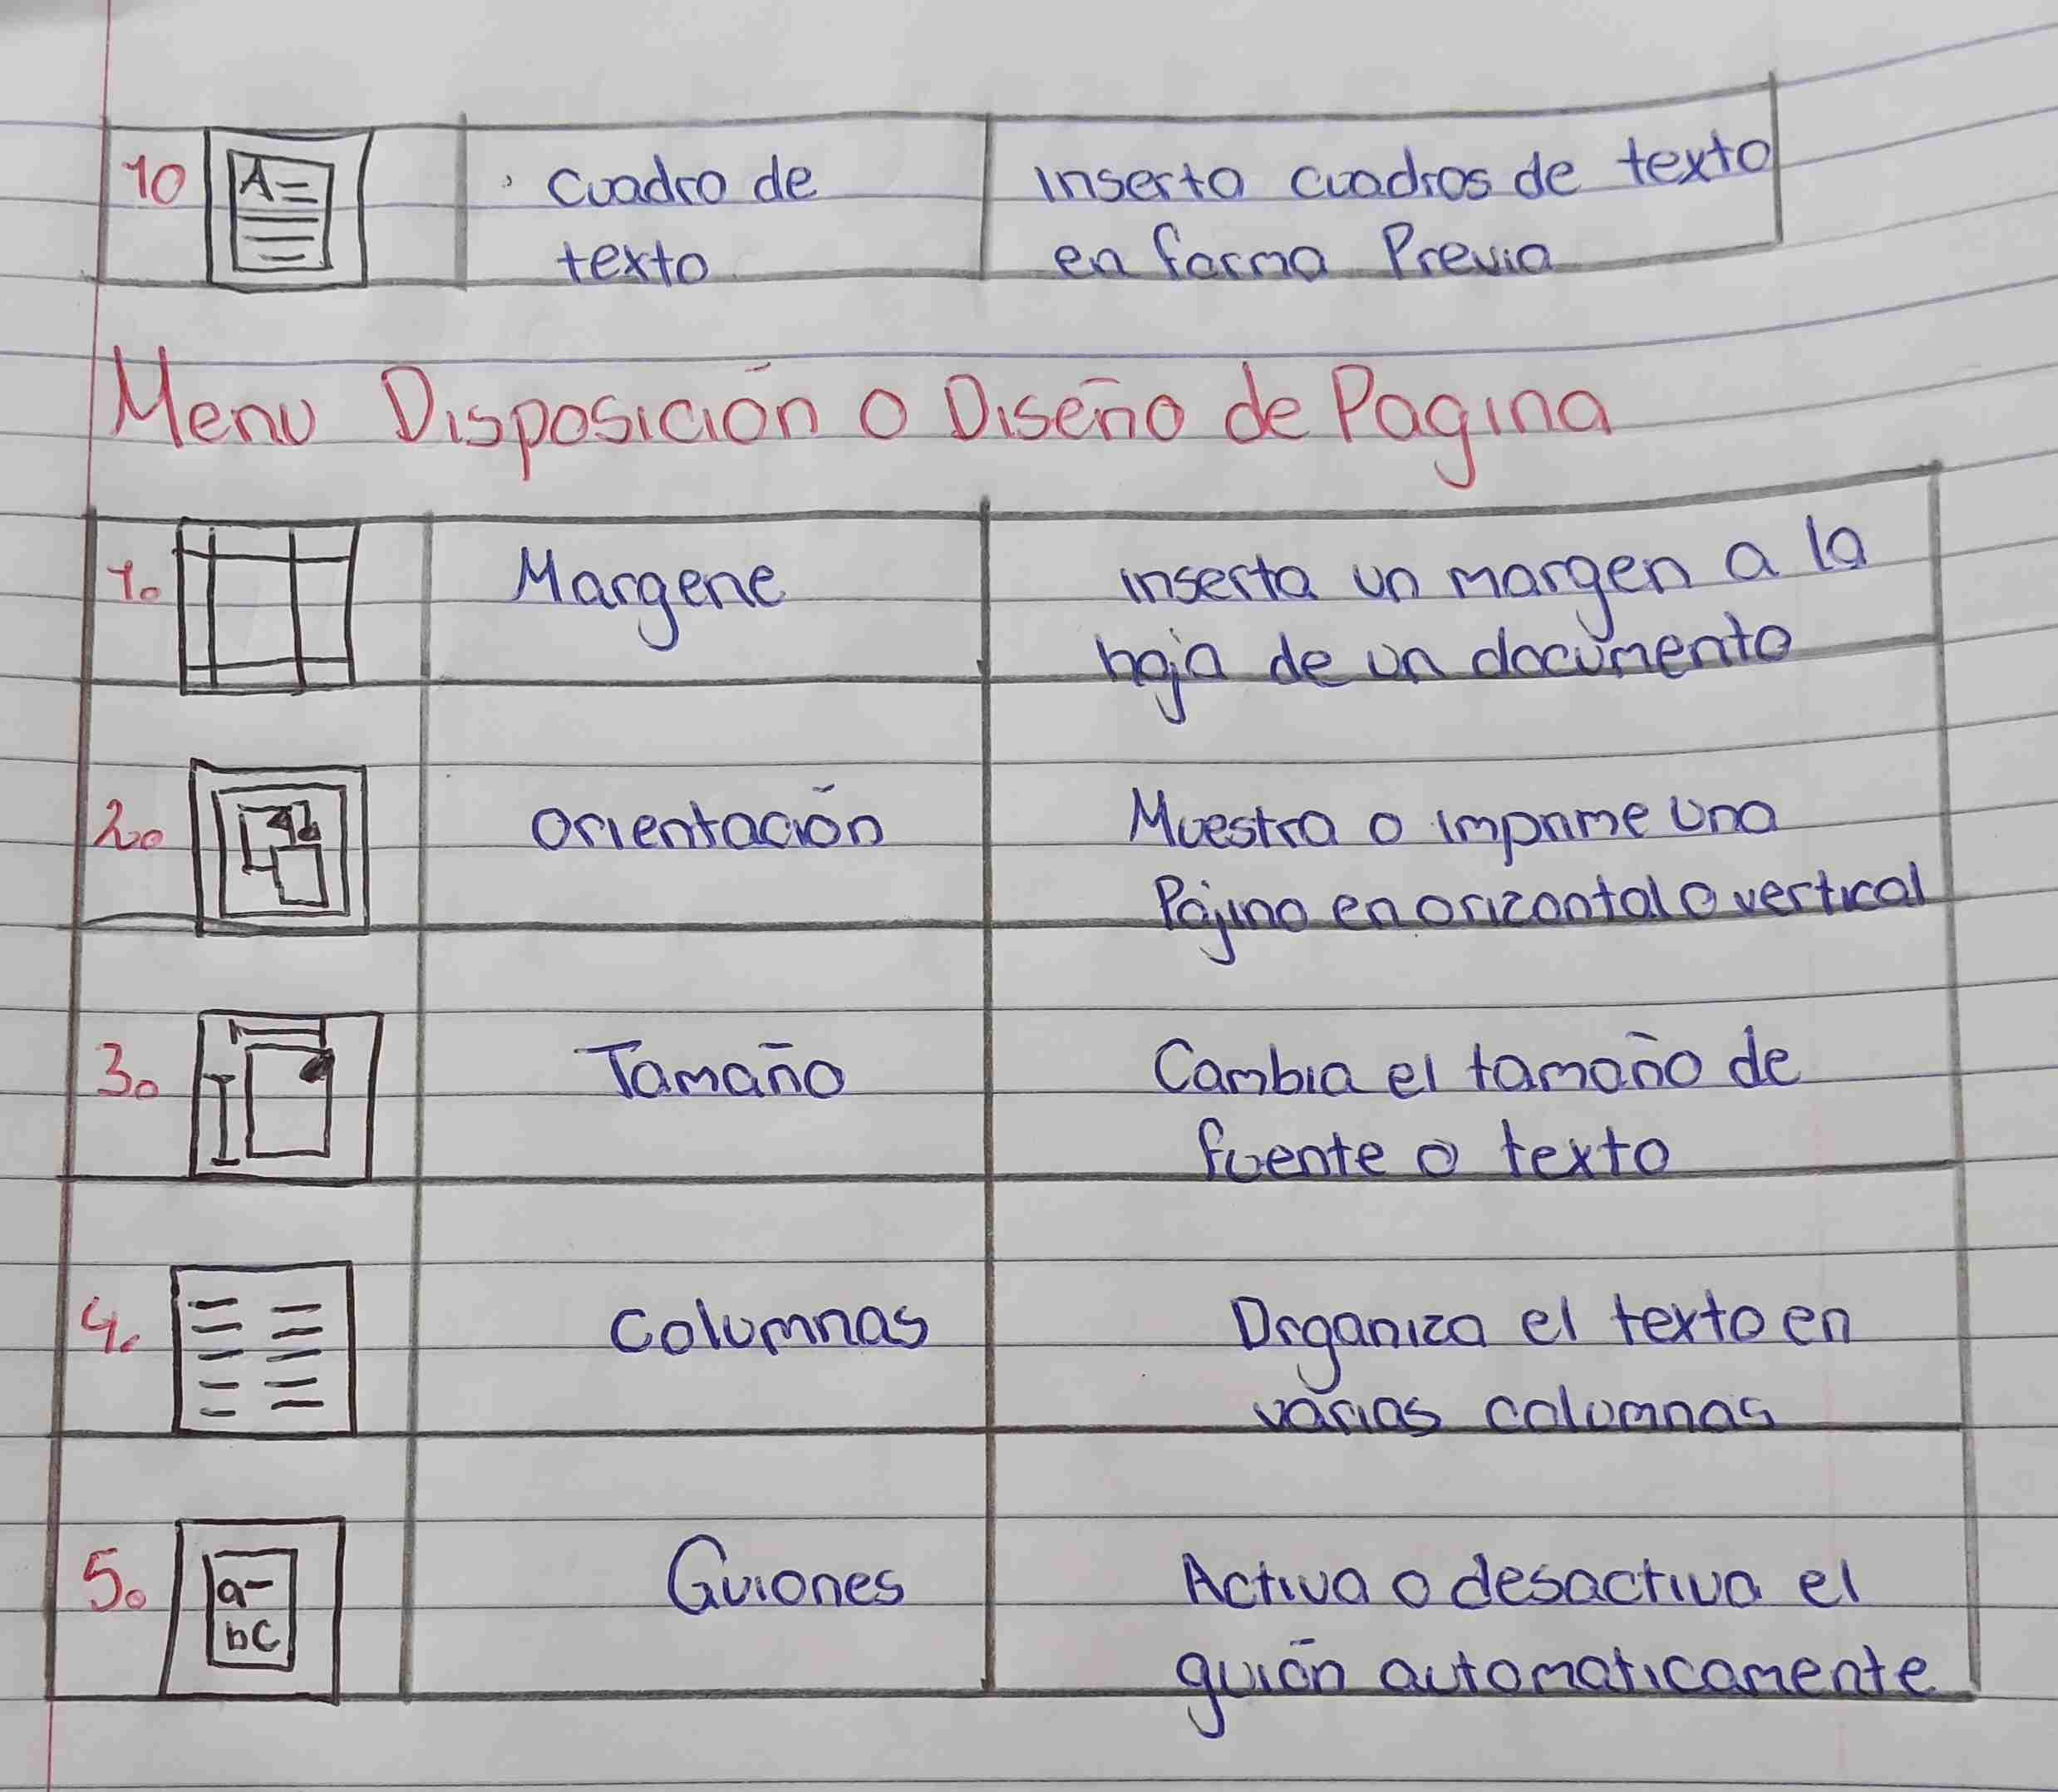 10 A= Cuadro de inserta cuadros de texto
texto en forma Previa
Menu Disposición o Diseño de Pagina
1. Margene inserta un margen a la
hoja de un documento
2. Orientación Muestra o imprime una
Pájina en orizontal o vertical
3. Tamaño Cambia el tamaño de
fuente o texto
4. Columnas Organiza el texto en
varias columnas
5. a- Guiones Activa o desactiva el
bc guión automaticamente